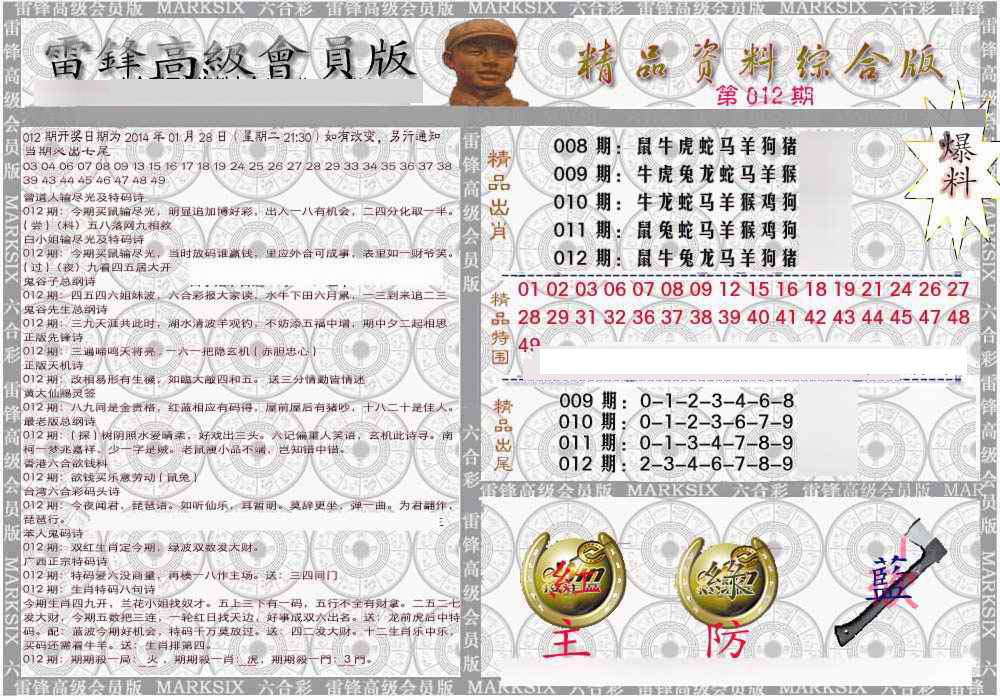 雷锋高级会员版 MARKSIX 六合彩 雷锋高级会员版 MARKSIX 六合彩 雷锋
雷鋒高級會員版
精品资料综合版
第 012 期
爆料
012 期开奖日期为 2014 年 01 月 28 日（星期二 21:30）如有改变，另行通知
当期火出七尾
03 04 06 07 08 09 13 15 16 17 18 19 24 25 26 27 28 29 33 34 35 36 37 38
39 43 44 45 46 47 48 49
曾道人输尽光及特码诗
012 期：今期买鼠输尽光，明显追加博好彩，出入一八有机会，二四分化取一半。
{尝}（料）五八落网九相救
白小姐输尽光及特码诗
012 期：今期买鼠输尽光，当时放码谁赢钱，里应外合可成事，表里如一财爷笑。
{过}（夜）九看四五居大开
鬼谷子总纲诗
012 期：四五四六姐妹波，六合彩报大家读，水牛下田六月累，一三到来追二三
鬼谷先生总纲诗
012 期：三九天涯共此时，湖水清波羊观钓，不奶添五福中增，期中夕二起相思
正版先锋诗
012 期：三遍啼鸣天将亮，一六一把隐玄机{赤胆忠心}
正版天机诗
012 期：改相易形有生機，如臨大敵四和五。 送三分情勤皆情述
黄大仙赐灵签
012 期：八九同是金贵格，红蓝相应有码得，屋前屋后有猪吵，十八二十是佳人。
最老版总纲诗
012 期：{探}树阴照水爱晴柔，好戏出三头。六记偏重人笑语，玄机此诗寻。南
柯一梦兆嘉祥。少一字是贼。老鼠瘦小品不端，岂知错中错。
香港六合欲钱料
012 期：欲钱买乐意劳动{鼠兔}
台湾六合彩码头诗
012 期：今夜闻君，琵琶语。如听仙乐，耳暂明。莫辞更坐，弹一曲。为君翻作，
琵琶行。
笨人鬼码诗
012 期：双红生肖定今期，绿波双数发大财。
广西正宗特码诗
012 期：特码爱六没商量，再楼一八作主场。送：三四同门
012 期：生肖特码八句诗
今期生肖四九开，兰花小姐找奴才。五上三下有一码，五行不全有财拿。二五二七
发大财，今期五数把三连，一轮红日找天边，好事成双六出名。送：龙前虎后中特
码。配：蓝波今期好机会，特码千万莫放过。送：四二发大财。十二生肖乐中乐，
买码还需看牛羊。送：生肖排第四。
012 期：期期殺一局：火，期期殺一肖：虎，期期殺一門：3 門。
精品出肖
008 期：鼠牛虎蛇马羊狗猪
009 期：牛虎兔龙蛇马羊猴
010 期：牛龙蛇马羊猴鸡狗
011 期：鼠兔蛇马羊猴鸡狗
012 期：鼠牛兔龙马羊狗猪
精品特围
01 02 03 06 07 08 09 12 15 16 18 19 21 24 26 27
28 29 31 32 36 37 38 39 40 41 42 43 44 45 47 48
49
精品出尾
009 期：0-1-2-3-4-6-8
010 期：0-1-2-3-6-7-9
011 期：0-1-3-4-7-8-9
012 期：2-3-4-6-7-8-9
雷锋高级会员版 MARKSIX 六合彩 雷锋高级会员版 MAR
紅 綠 藍
主 防
雷锋高级会员版 MARKSIX 六合彩 雷锋高级会员版 MARKSIX 六合彩 雷锋